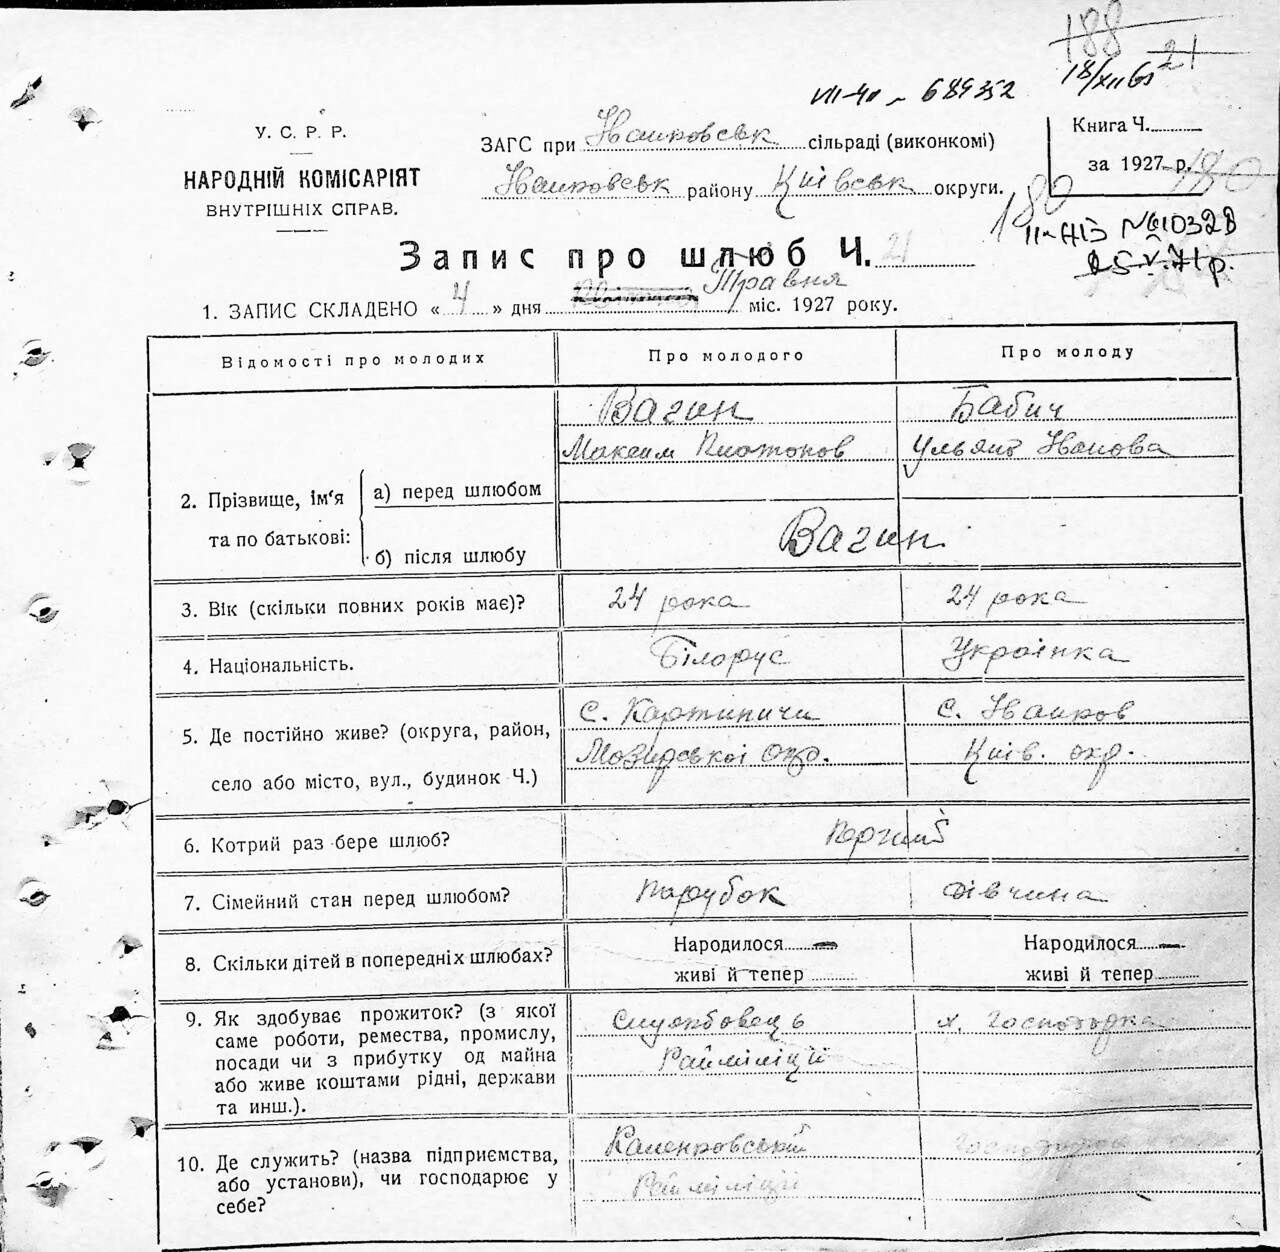 188
21
18/XII 61
VII-ЧО № 689352
У. С. Р. Р.
НАРОДНІЙ КОМІСАРІЯТ
ВНУТРІШНІХ СПРАВ.
ЗАГС при Іванковськ сільраді (виконкомі)
Іванковськ району Київськ округи.
Книга Ч.
за 1927 р.
180
180
25 V. 71 р.
Запис про шлюб Ч. 21
1. ЗАПИС СКЛАДЕНО « 4 » дня Травня міс. 1927 року.
Відомості про молодих Про молодого Про молоду
2. Прізвище, ім'я та по батькові:
а) перед шлюбом
Вагин Бабич
Максим Платонов Ульяна Іванова
б) після шлюбу
Вагин
3. Вік (скільки повних років має)? 24 рока 24 рока
4. Національність. Білорус Українка
5. Де постійно живе? (округа, район,
село або місто, вул., будинок Ч.)
с. Картиничи с. Іванков
Мозирської окр. Київ. окр.
6. Котрий раз бере шлюб? Перший
7. Сімейний стан перед шлюбом? парубок дівчина
8. Скільки дітей в попередніх шлюбах? Народилося — Народилося —
живі й тепер живі й тепер
9. Як здобуває прожиток? (з якої
саме роботи, ремества, промислу,
посади чи з прибутку од майна
або живе коштами рідні, держави
та инш.).
Службовець х. господарка
Райміліції
10. Де служить? (назва підприємства,
або установи), чи господарює у
себе?
Райміліції